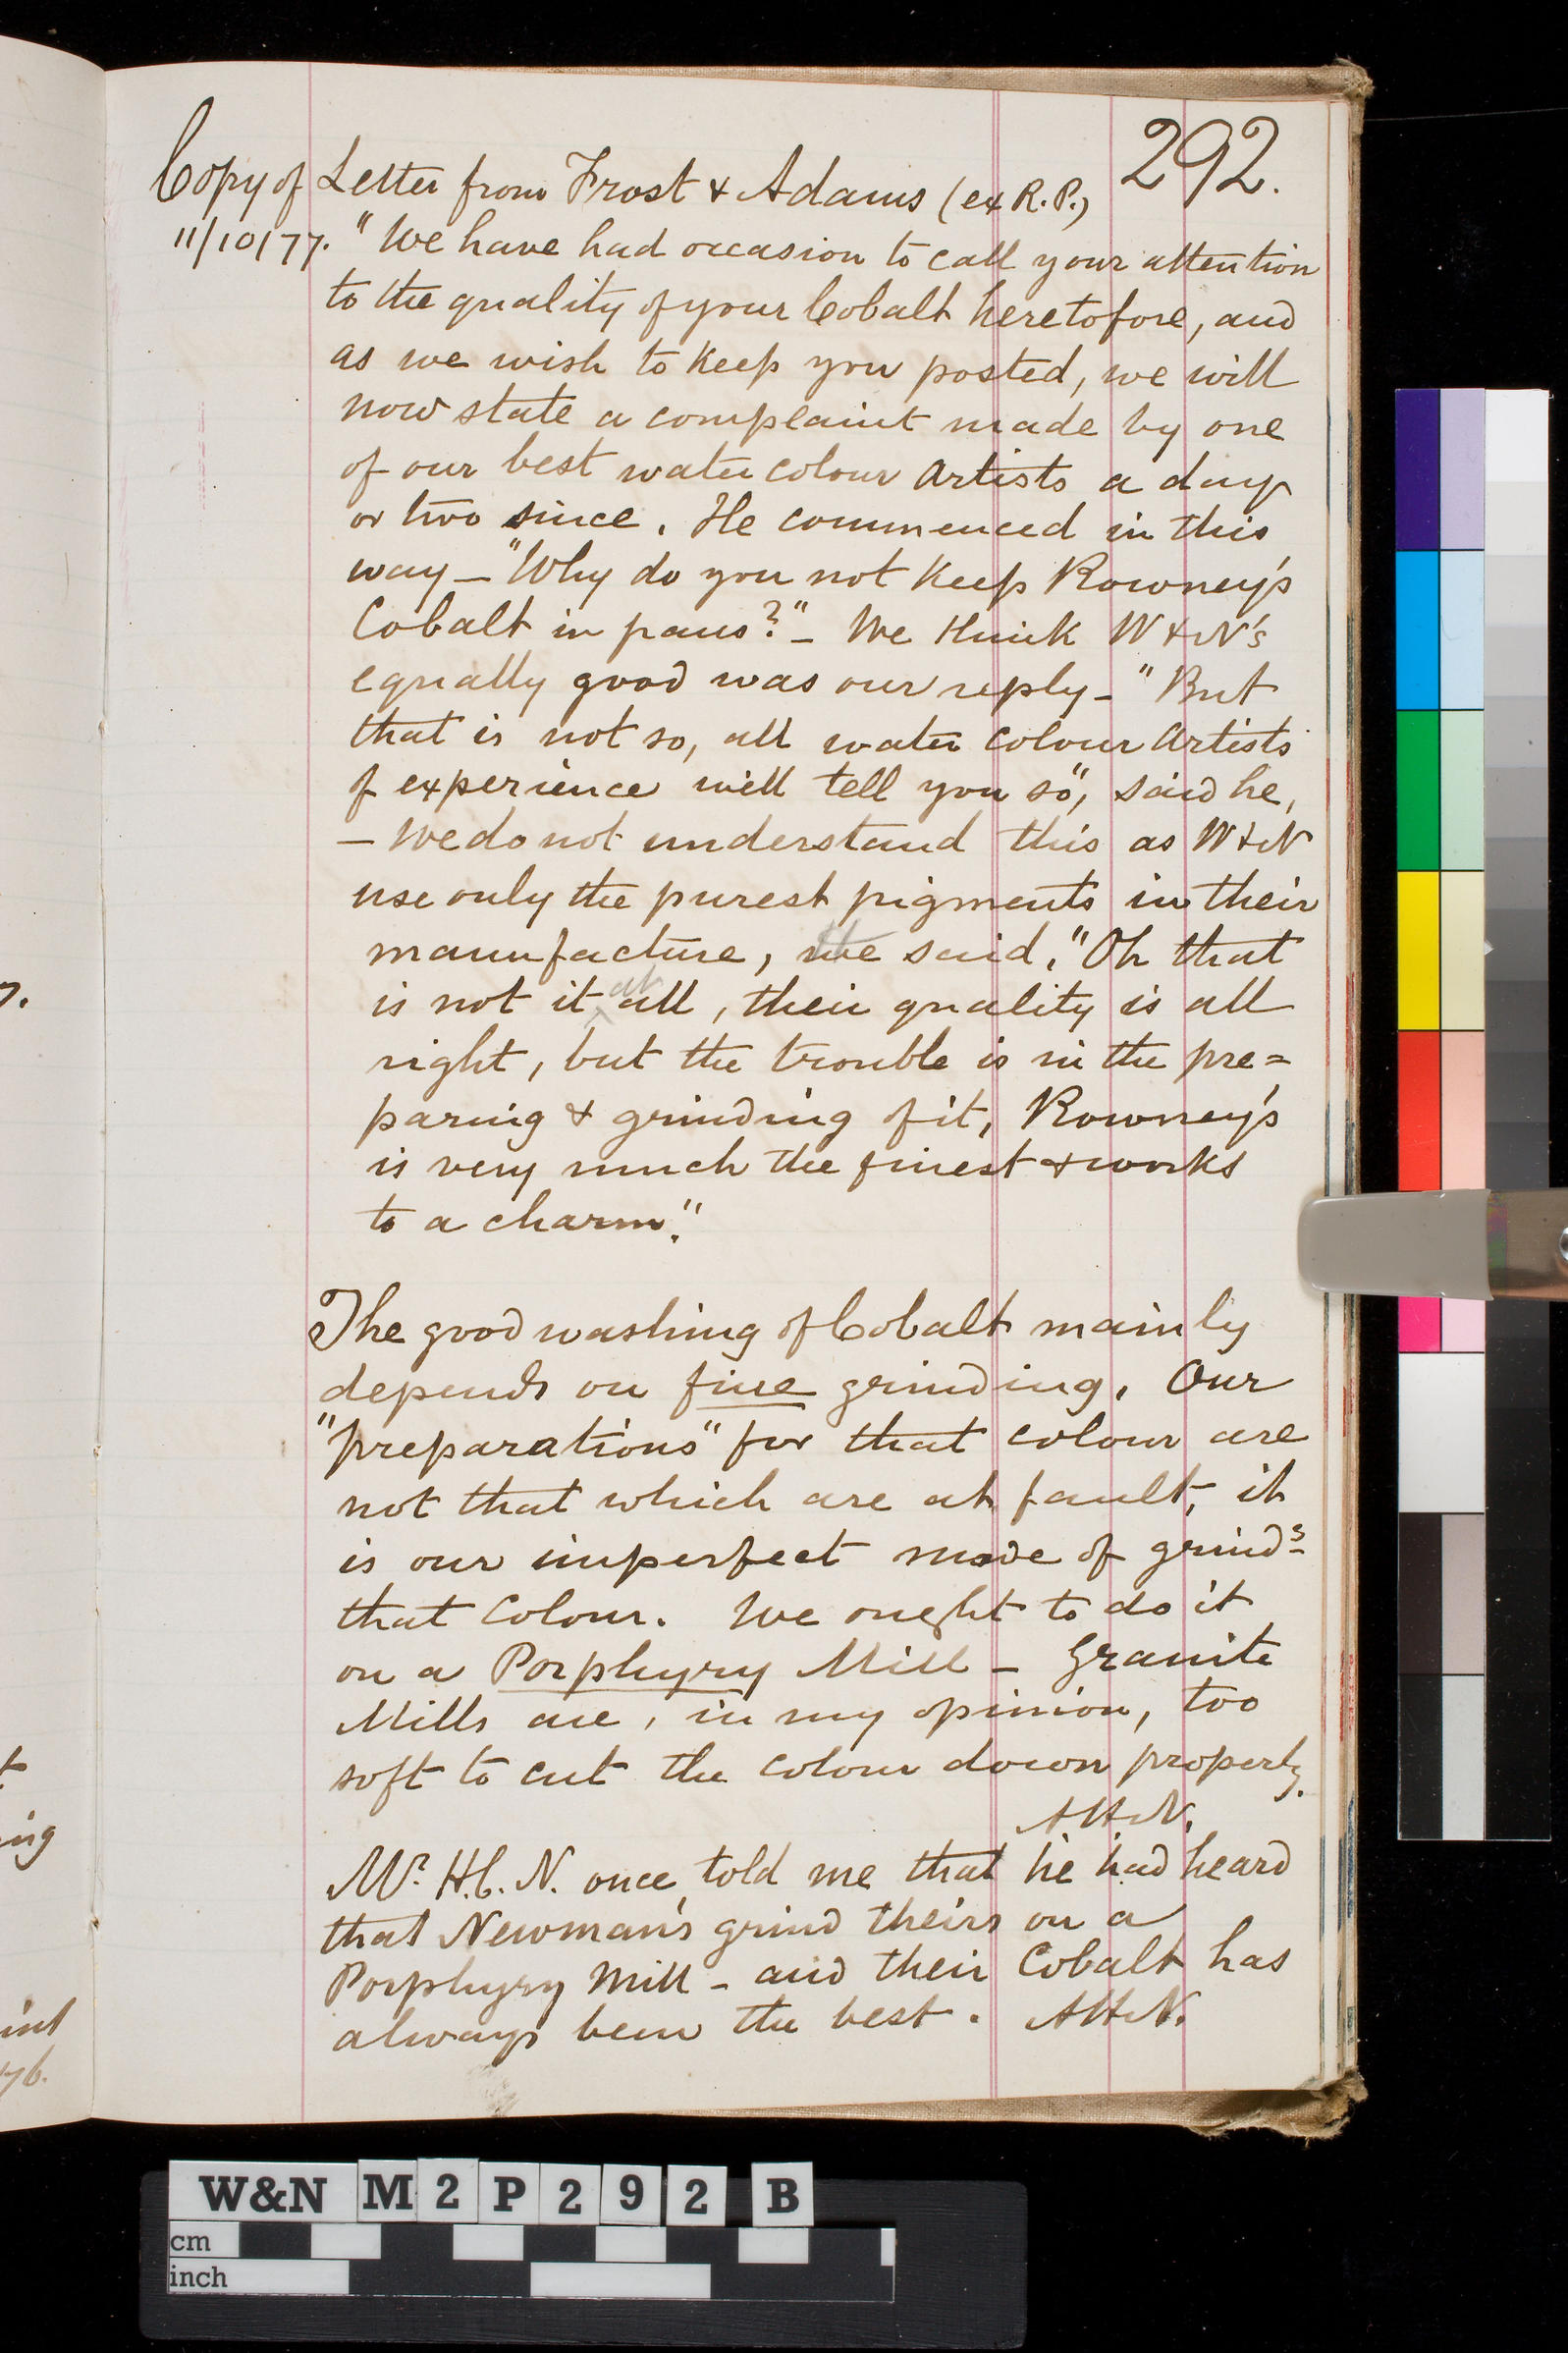 292.
Copy of Letter from Frost & Adams (ex R.P.)
11/10/77. "We have had occasion to call your attention
to the quality of your Cobalt heretofore, and
as we wish to keep you posted, we will
now state a complaint made by one
of our best water colour Artists a day
or two since. He commenced in this
way — "Why do you not keep Rowney's
Cobalt in pans?" — We think W & N's
equally good was our reply — "But
that is not so, all water colour Artists
of experience will tell you so", said he,
— We do not understand this as W & N
use only the purest pigments in their
manufacture, we said. "Oh that
is not it at all, their quality is all
right, but the trouble is in the pre=
paring & grinding of it, Rowney's
is very much the finest & works
to a charm."
The good washing of Cobalt mainly
depends on fine grinding. Our
"preparations" for that colour are
not that which are at fault, it
is our imperfect mode of grindg
that Colour. We ought to do it
on a Porphyry Mill — Granite
Mills are, in my opinion, too
soft to cut the colour down properly.
AHN.
Mr. H.C. N. once told me that he had heard
that Newman's grind theirs on a
Porphyry Mill — and their Cobalt has
always been the best. AHN.
7.
t
ing
int
76.
W&N M 2 P 2 9 2 B
cm
inch